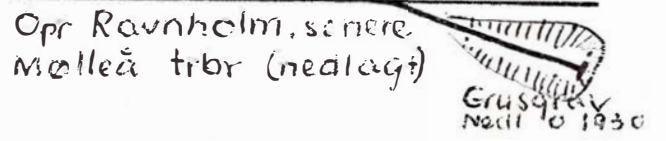 Opr Ravnholm, senere
Mølleå trbr (nedlagt)
Grusgrav
Nedl 1930